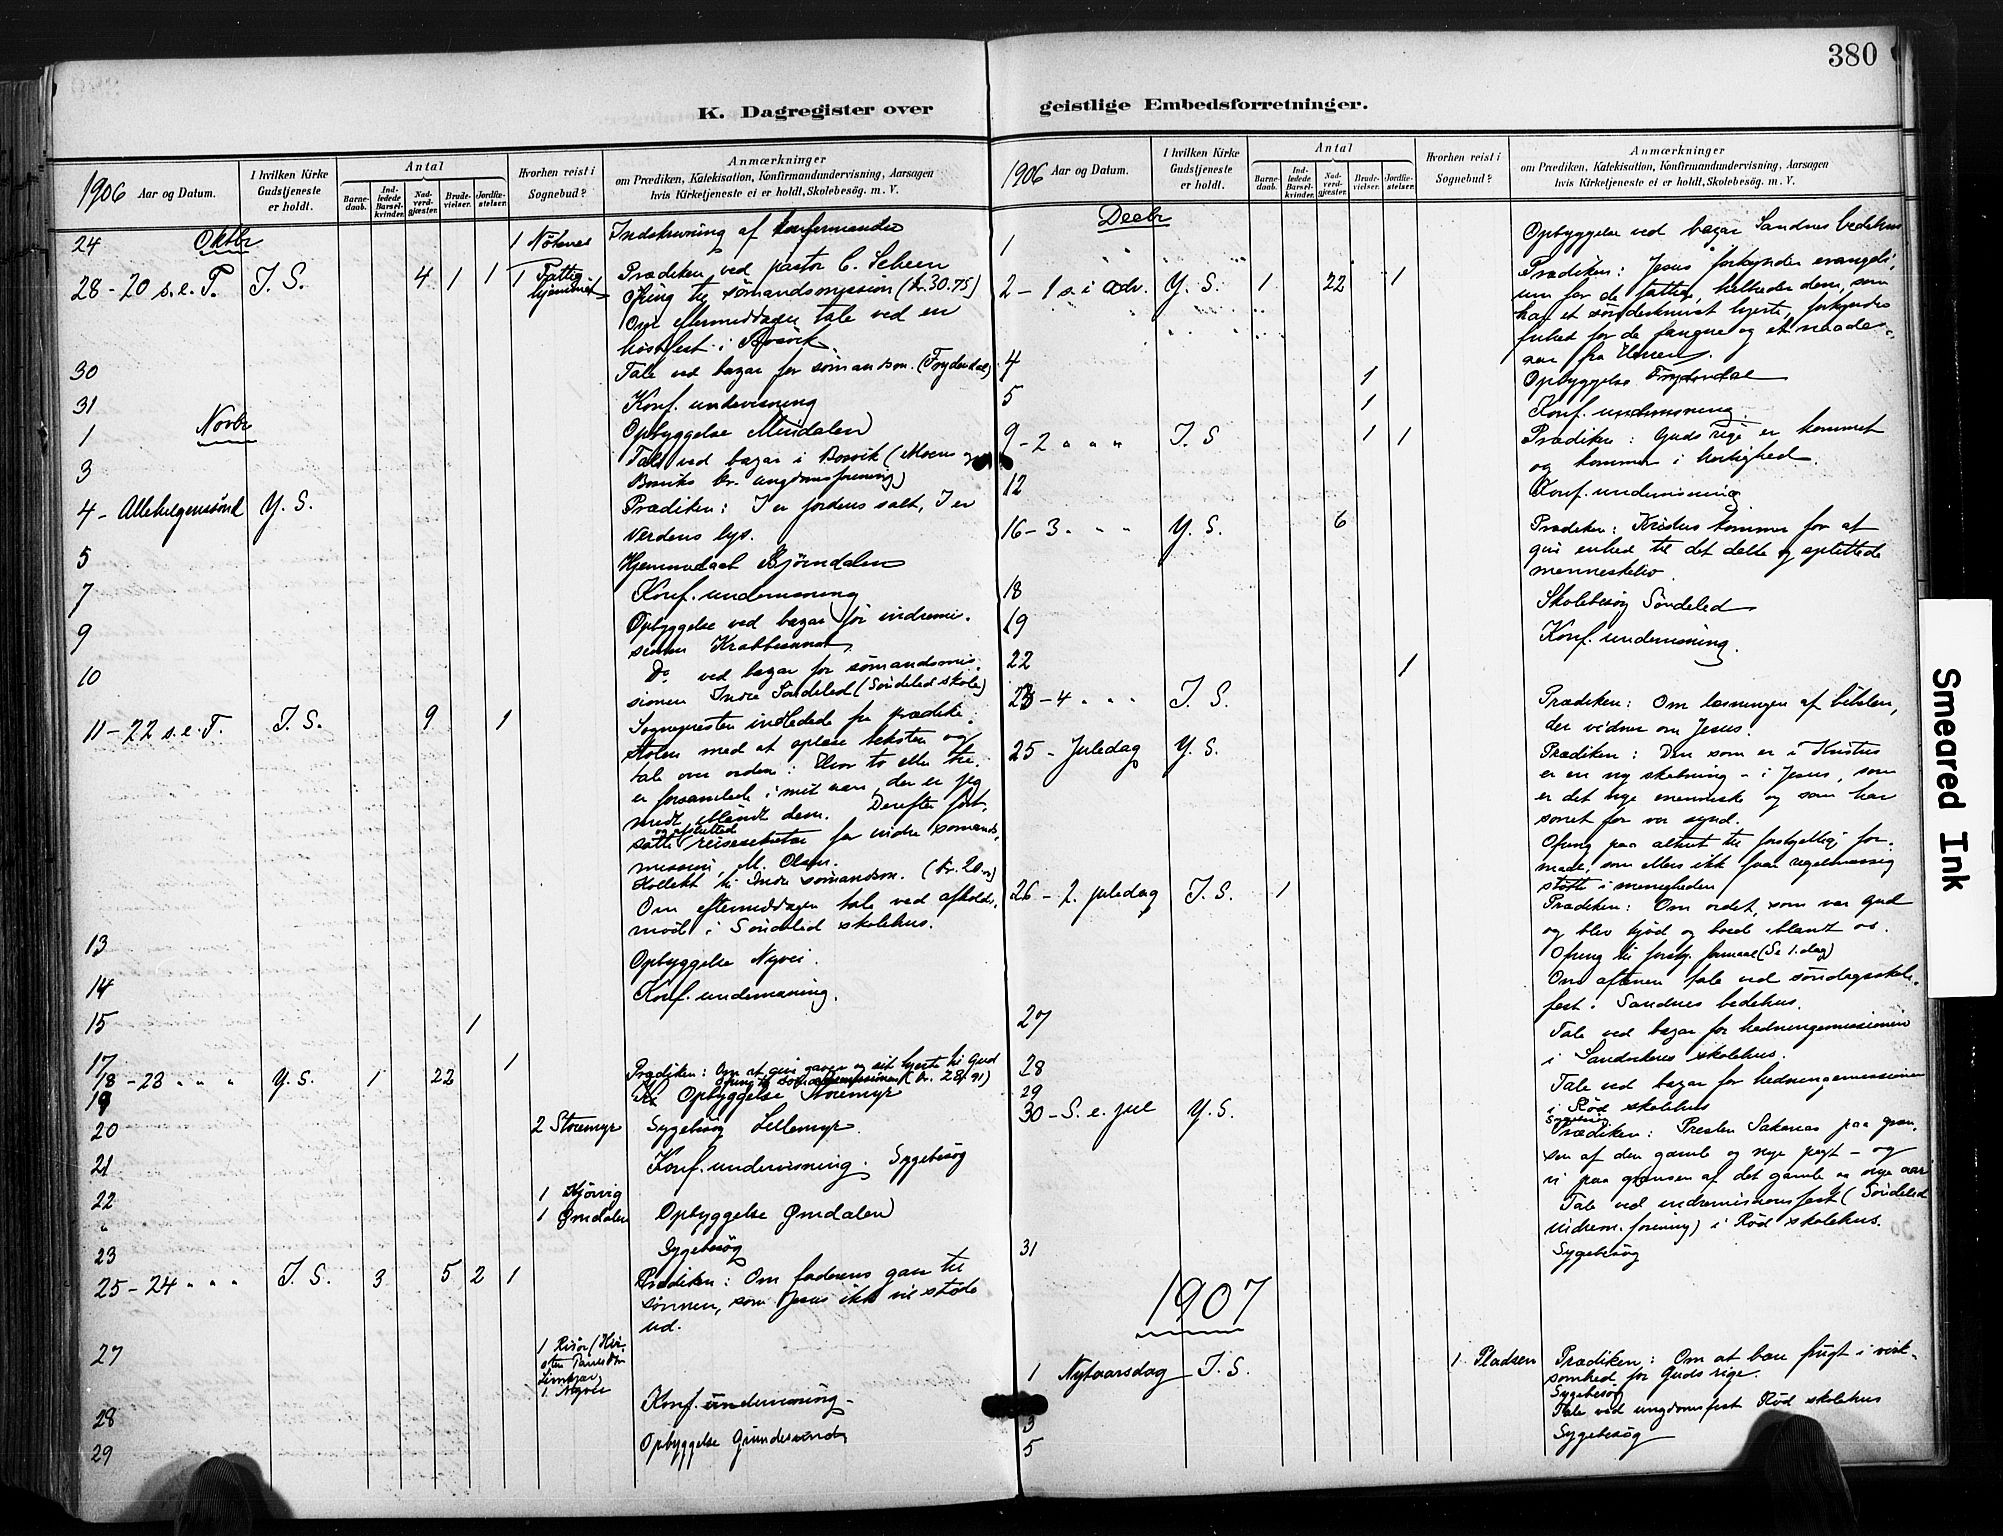 380
K. Dagregister over geistlige Embedsforretninger.
1906 Aar og Datum.
I hvilken Kirke Gudstjeneste er holdt.
Antal
Barnedaab.
Indledede Barselkvinder.
Nadverdgjæster.
Brudevielser.
Jordfæstelser.
Hvorhen reist i Sognebud?
Anmærkninger
om Prædiken, Katekisation, Konfirmandundervisning, Aarsagen
hvis Kirketjeneste ei er holdt, Skolebesøg. m. V.
Oktbr
24 1 Indskrivning af konfirmander
28 - 20 s. e. T. I. S. 4 1 1 1 Fattighjemmet Prædiken ved pastor C. Scheen
Ofring til sømandsmission (kr. 30.75)
Om eftermiddagen tale ved en
høstfest i
30 Tale ved bazar for sømandsm. (Frydendal)
31 Konf. undervisning
Novbr
1 Opbyggelse Mindalen
3 Tale ved bazar i Bosvik (Moens og
Bosviks kr. ungdomsforening)
4 - Allehelgenssønd Y. S. Prædiken: I er jordens salt, I er
verdens lys.
5 Hjemmedaab Bjørndalen
7 Konf. undervisning
9 Opbyggelse ved bazar for indremis-
sionen Krabbesund
10 Do ved bazar for sømandsmis-
sionen Indre Søndeled (Søndeled skole)
11 - 22 s. e. T. I. S. 9 1 Sognepresten indledede fra prædike-
stolen med at oplæse teksten og
tale om ordene: Hvor to eller tre
er forsamlede i mit navn, der er jeg
midt iblandt dem. Derefter fort-
og afslutted
satte reisesekretær for indre sømands-
mission, M. Olsen.
Kollekt til Indre sømandsm. (kr. 20.00)
Om eftermiddagen tale ved afholds-
møde i Søndeled skolehus.
13 Opbyggelse Nyvei.
14 Konf. undervisning.
15 1
17 1
18 - 23 " " " Y. S. 1 22 Prædiken: Om at give gaver og sit hjerte til Gud
Ofring til sømandsmissionen (kr. 28.91)
19 Opbyggelse Storemyr
20 2 Storemyr Sygebesøg Lillemyr.
21 Konf. undervisning. Sygebesøg
22 1 Kjørvig
" 1 Ømdalen Opbyggelse Ømdalen
23 Sygebesøg
25 - 24 " " " I. S. 3 5 2 1 Prædiken: Om faderens gave til
sønnen, som Jesus ikke vil støde
ud.
27 1 Risør
1. Nyvei
28 Konf. undervisning -
29 Opbyggelse Grundesund
1906 Aar og Datum.
I hvilken Kirke Gudstjeneste er holdt.
Antal
Barnedaab.
Indledede Barselkvinder.
Nadverdgjæster.
Brudevielser.
Jordfæstelser.
Hvorhen reist i Sognebud?
Anmærkninger
om Prædiken, Katekisation, Konfirmandundervisning, Aarsagen
hvis Kirketjeneste ei er holdt, Skolebesög. m. V.
Decbr
1 Opbyggelse ved bazar Sandnes bedehus
2 - 1 s. i adv. Y. S. 1 22 1 Prædiken: Jesus forkynder evangeli-
um for de fattige, helbreder dem, som
har et sønderknust hjerte, forkynder
frihed for de fangne og et naadens-
aar fra Herren.
4 1 Opbyggelse Frydendal
5 1 Konf. undervisning.
9 - 2 " " " I. S 1 1 Prædiken: Guds rige er kommet
og kommer i herlighed.
12 Konf. undervisning
16 - 3 " " " Y. S. 6 Prædiken: Kristus kommer for at
give enhed til det delte og splittede
menneskeliv.
18 Skolebesøg Søndeled
19 Konf. undervisning.
22 1
23 - 4 " " " I. S. Prædiken: Om læsningen af bibelen,
der vidner om Jesus.
25 - Juledag Y. S. Prædiken: Den som er i Kristus
er en ny skabning - i Jesus, som
er det nye menneske og som har
sonet for vor synd.
Ofring paa alteret til forskjellig for-
maal, som ellers ikke faar regelmæssig
støtte i menigheden
26 - 2. juledag I. S. 1 Prædiken: Om ordet, som var Gud
og blev kjød og boede iblandt os.
Ofring til forskj. formaal (Se 1. dag)
Om aftenen tale ved søndagsskole-
fest. Sandnes bedehus.
27 Tale ved bazar for hedningemissionen
i Sandnkers skolehus.
28 Tale ved bazar for hedningemissionen
i Rød skolehus
29 Sygebesøg
30 - S. e. jul Y. S. Prædiken: Presten Sakarias paa græn-
sen af den gamle og nye pagt - og
vi paa grænsen af det gamle og nye aar
Tale ved indremissionsfest (Søndeled
indrem. forening) i Rød skolehus.
31 Sygebesøg
1907
1 Nytaarsdag I. S. 1 Pladsen Prædiken: Om at bære frugt i virk-
somhed for Guds rige.
Sygebesøg
3 Tale ved ungdomsfest Rød skolehus
5 Sygebesøg
Smeared Ink